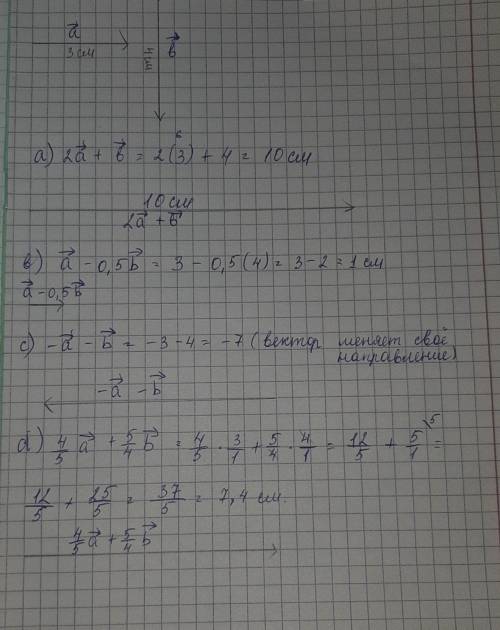 a⃗
3 см
4 см
b⃗
a) 2a⃗ + b⃗ = 2(3) + 4 = 10 см
6
10 см
2a⃗ + b⃗
b) a⃗ - 0,5b⃗ = 3 - 0,5(4) = 3-2 = 1 см
a⃗ - 0,5b⃗
c) -a⃗ - b⃗ = -3-4 = -7 (вектор меняет своё
направление)
-a⃗ - b⃗
d) 4/5 a⃗ + 5/4 b⃗ = 4/5 · 3/1 + 5/4 · 4/1 = 12/5 + 5/1 \5 =
12/5 + 25/5 = 37/5 = 7,4 см.
4/5 a⃗ + 5/4 b⃗